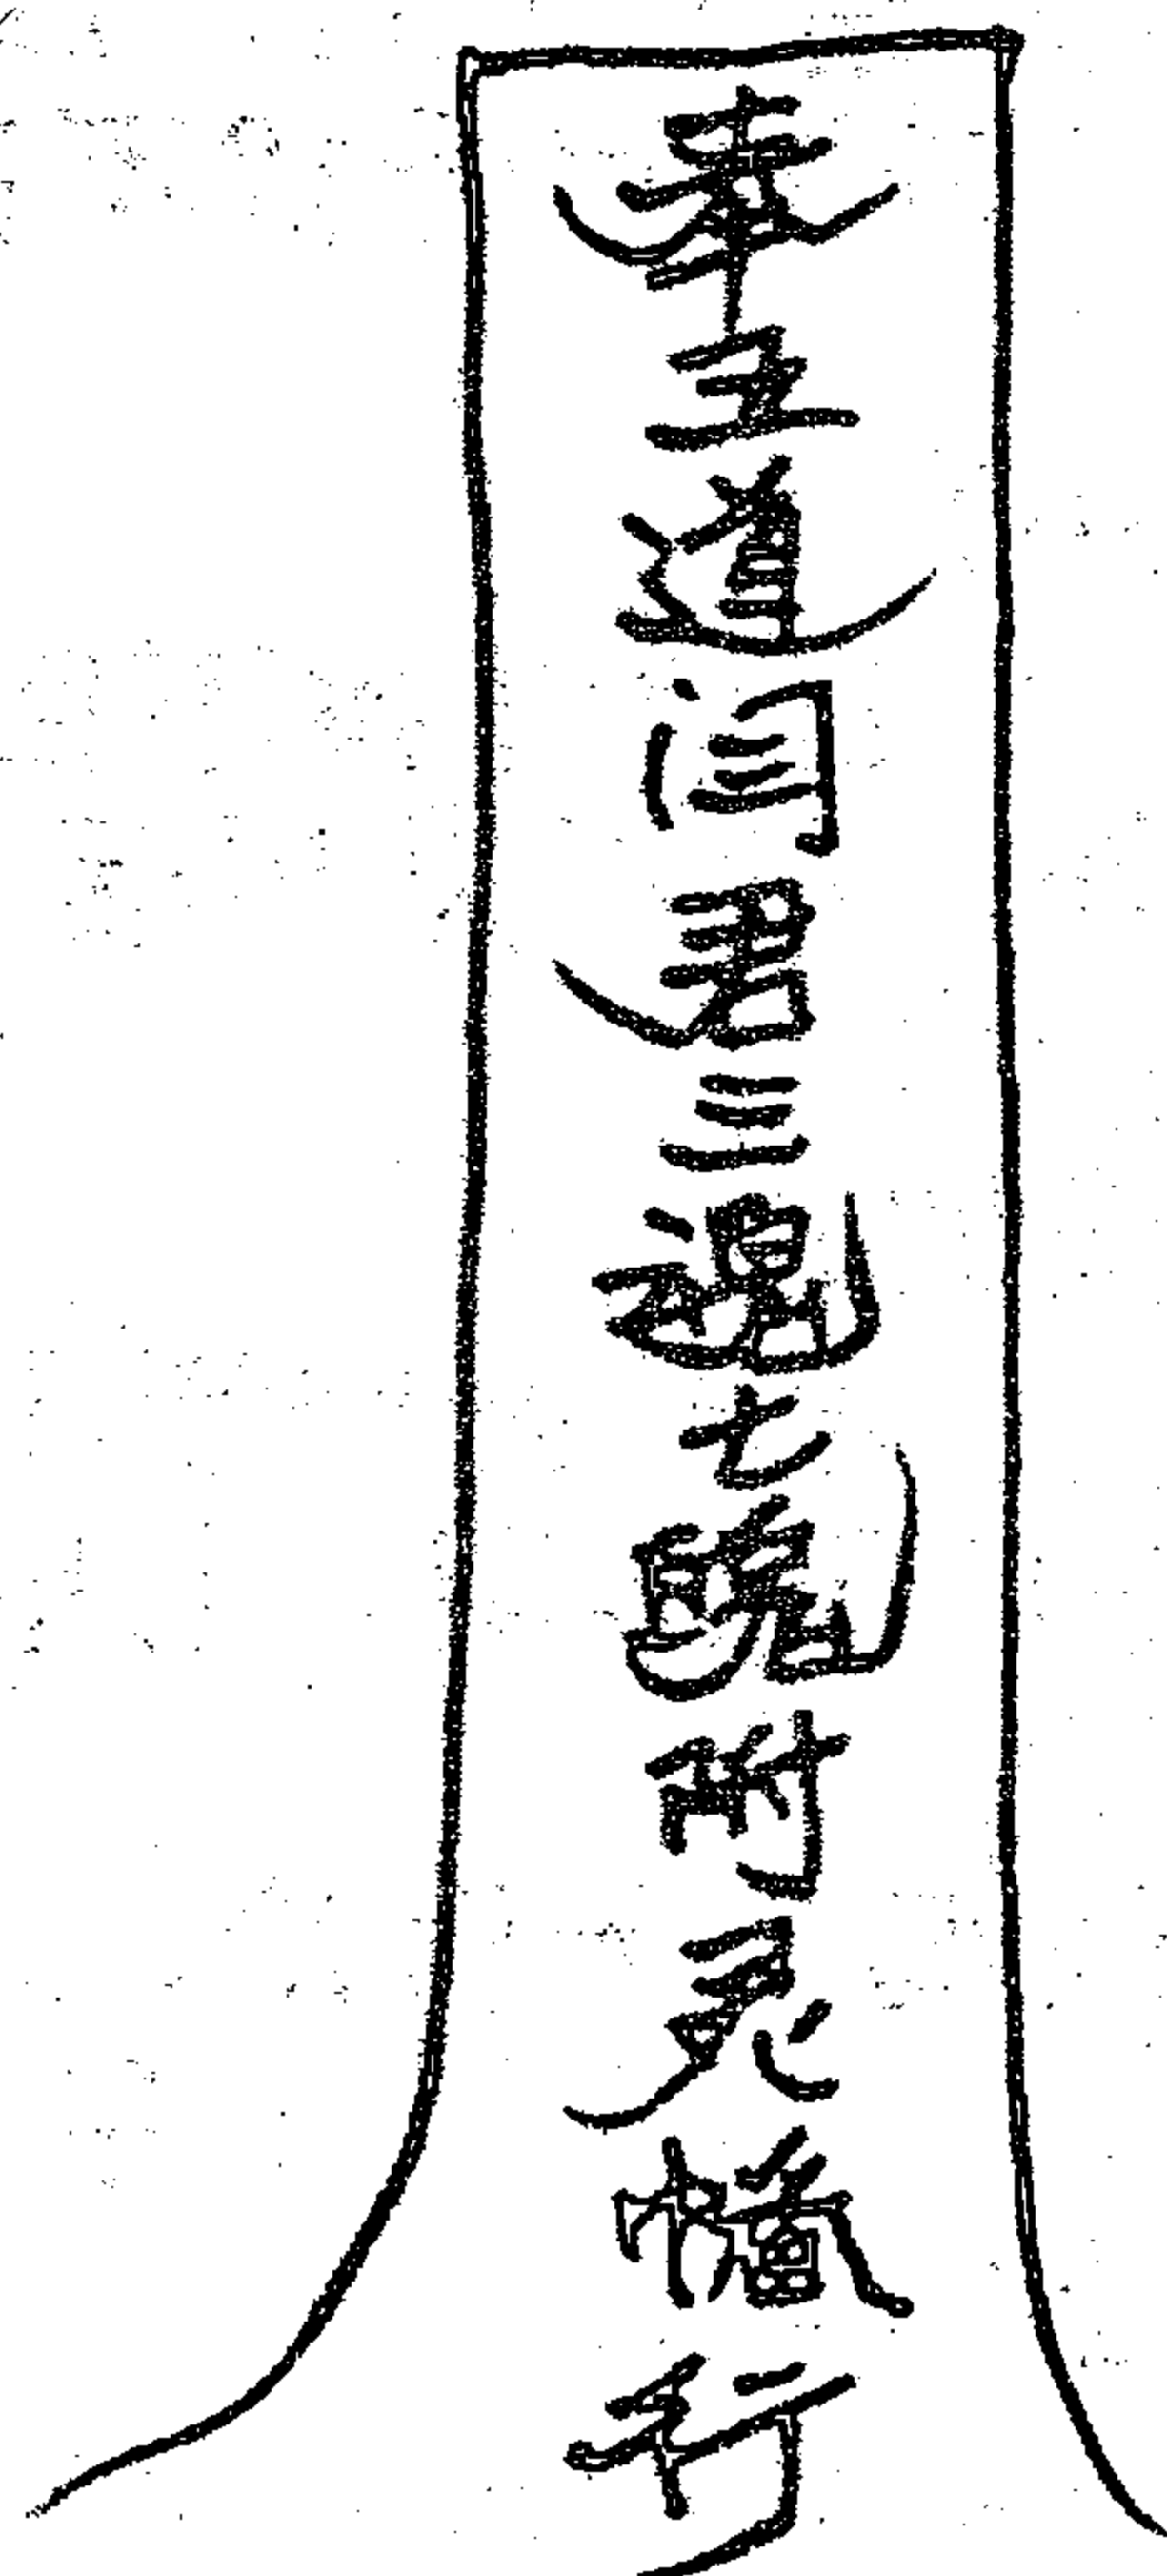 奉五道闫君三魂七魄附灵幡行